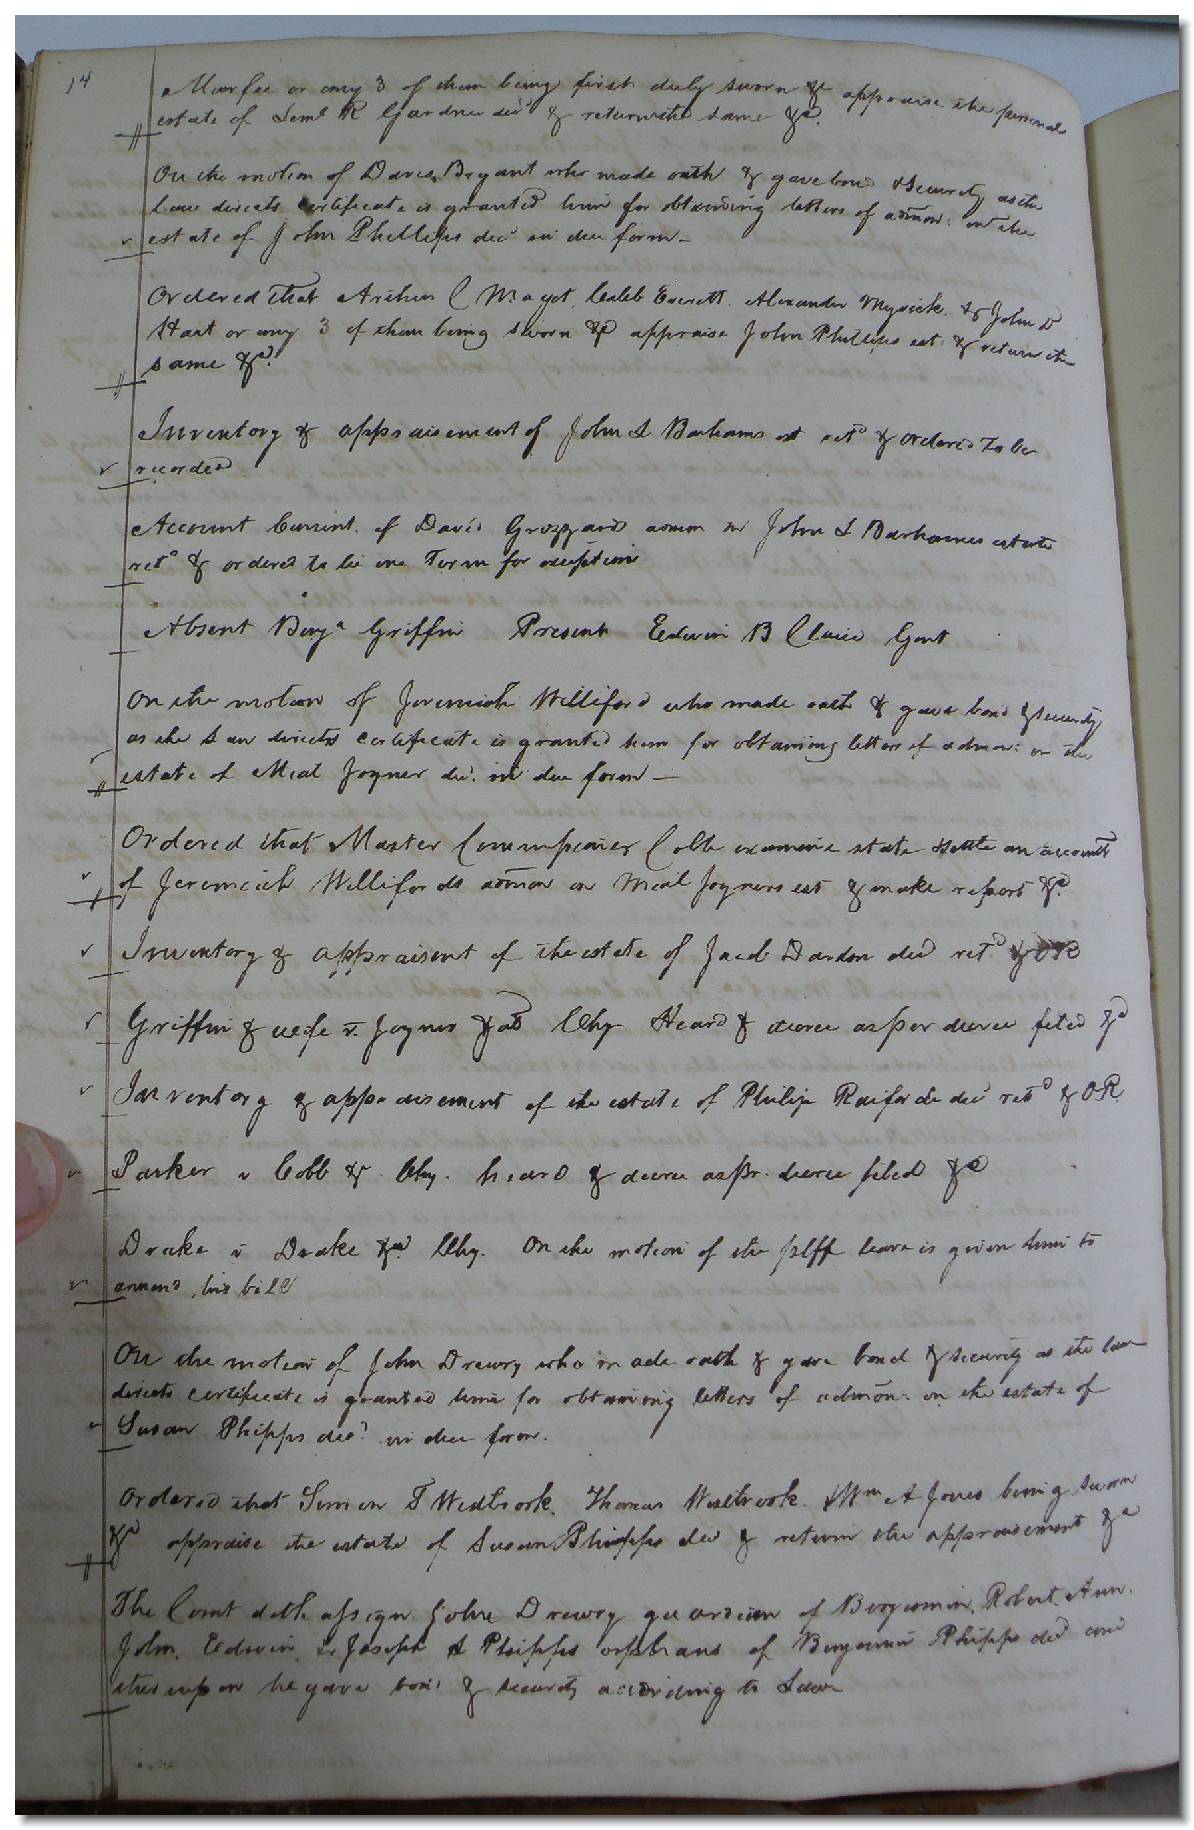 14
Murfee or any 3 of them being first duly sworn &c appraise the personal
estate of Leml R Gardner decd & return the same &c.
On the motion of Davis Bryant who made oath & gave bond & Security as the
Law directs certificate is granted him for obtaining letters of admon: on the
estate of John Phillips decd in due form —
Ordered that Arthur C Maget, Caleb Everett. Alexander Myrick. & John D
Hart or any 3 of them being sworn &c appraise John Phillips est & return the
same &c.
Inventory & appraisement of John L Barhams est retd & ordered to be
recorded
Account Current. of David Grizzard admon in John L Barhames estate
retd & ordered to lie one Term for exception
Absent Benja Griffin Present Edwin B Claud Gent
On the motion of Jeremiah Williford who made oath & gave bond & security
as the Law directs certificate is granted him for obtaining letters of admon: on the
estate of Meal Joyner decd. in due form —
Ordered that Master Commissioner Cobb examine state settle an account
of Jeremiah Willifords admon on Meal Joyners est & make report &c.
Inventory & appraisment of the estate of Jacob Dardon decd retd & OR
Griffin & wife v. Joyner & als Chy Heard & decree as per decree filed &c
Inventory & appraisement of the estate of Philip Raiford decd retd & OR.
Parker v Cobb & Chy. heard & decree as pr. decree filed &c
Drake v Drake &c. Chy. On the motion of the plff leave is given him to
amend his bill
On the motion of John Drewry who made oath & gave bond & security as the law
directs certificate is granted him for obtaining letters of admon: on the estate of
Susan Phipps decd in due form.
Ordered that Simon T Westbrook. Thomas Westbrook. & Wm A Jones being sworn
&c appraise the estate of Susan Phipps decd & return the appraisement &c
The Court doth assign John Drewry guardian of Benjamin, Robert, Ann.
John, Edwin & Joseph S Phipps orphans of Benjamin Phipps decd and
thereupon he gave bond & security according to Law